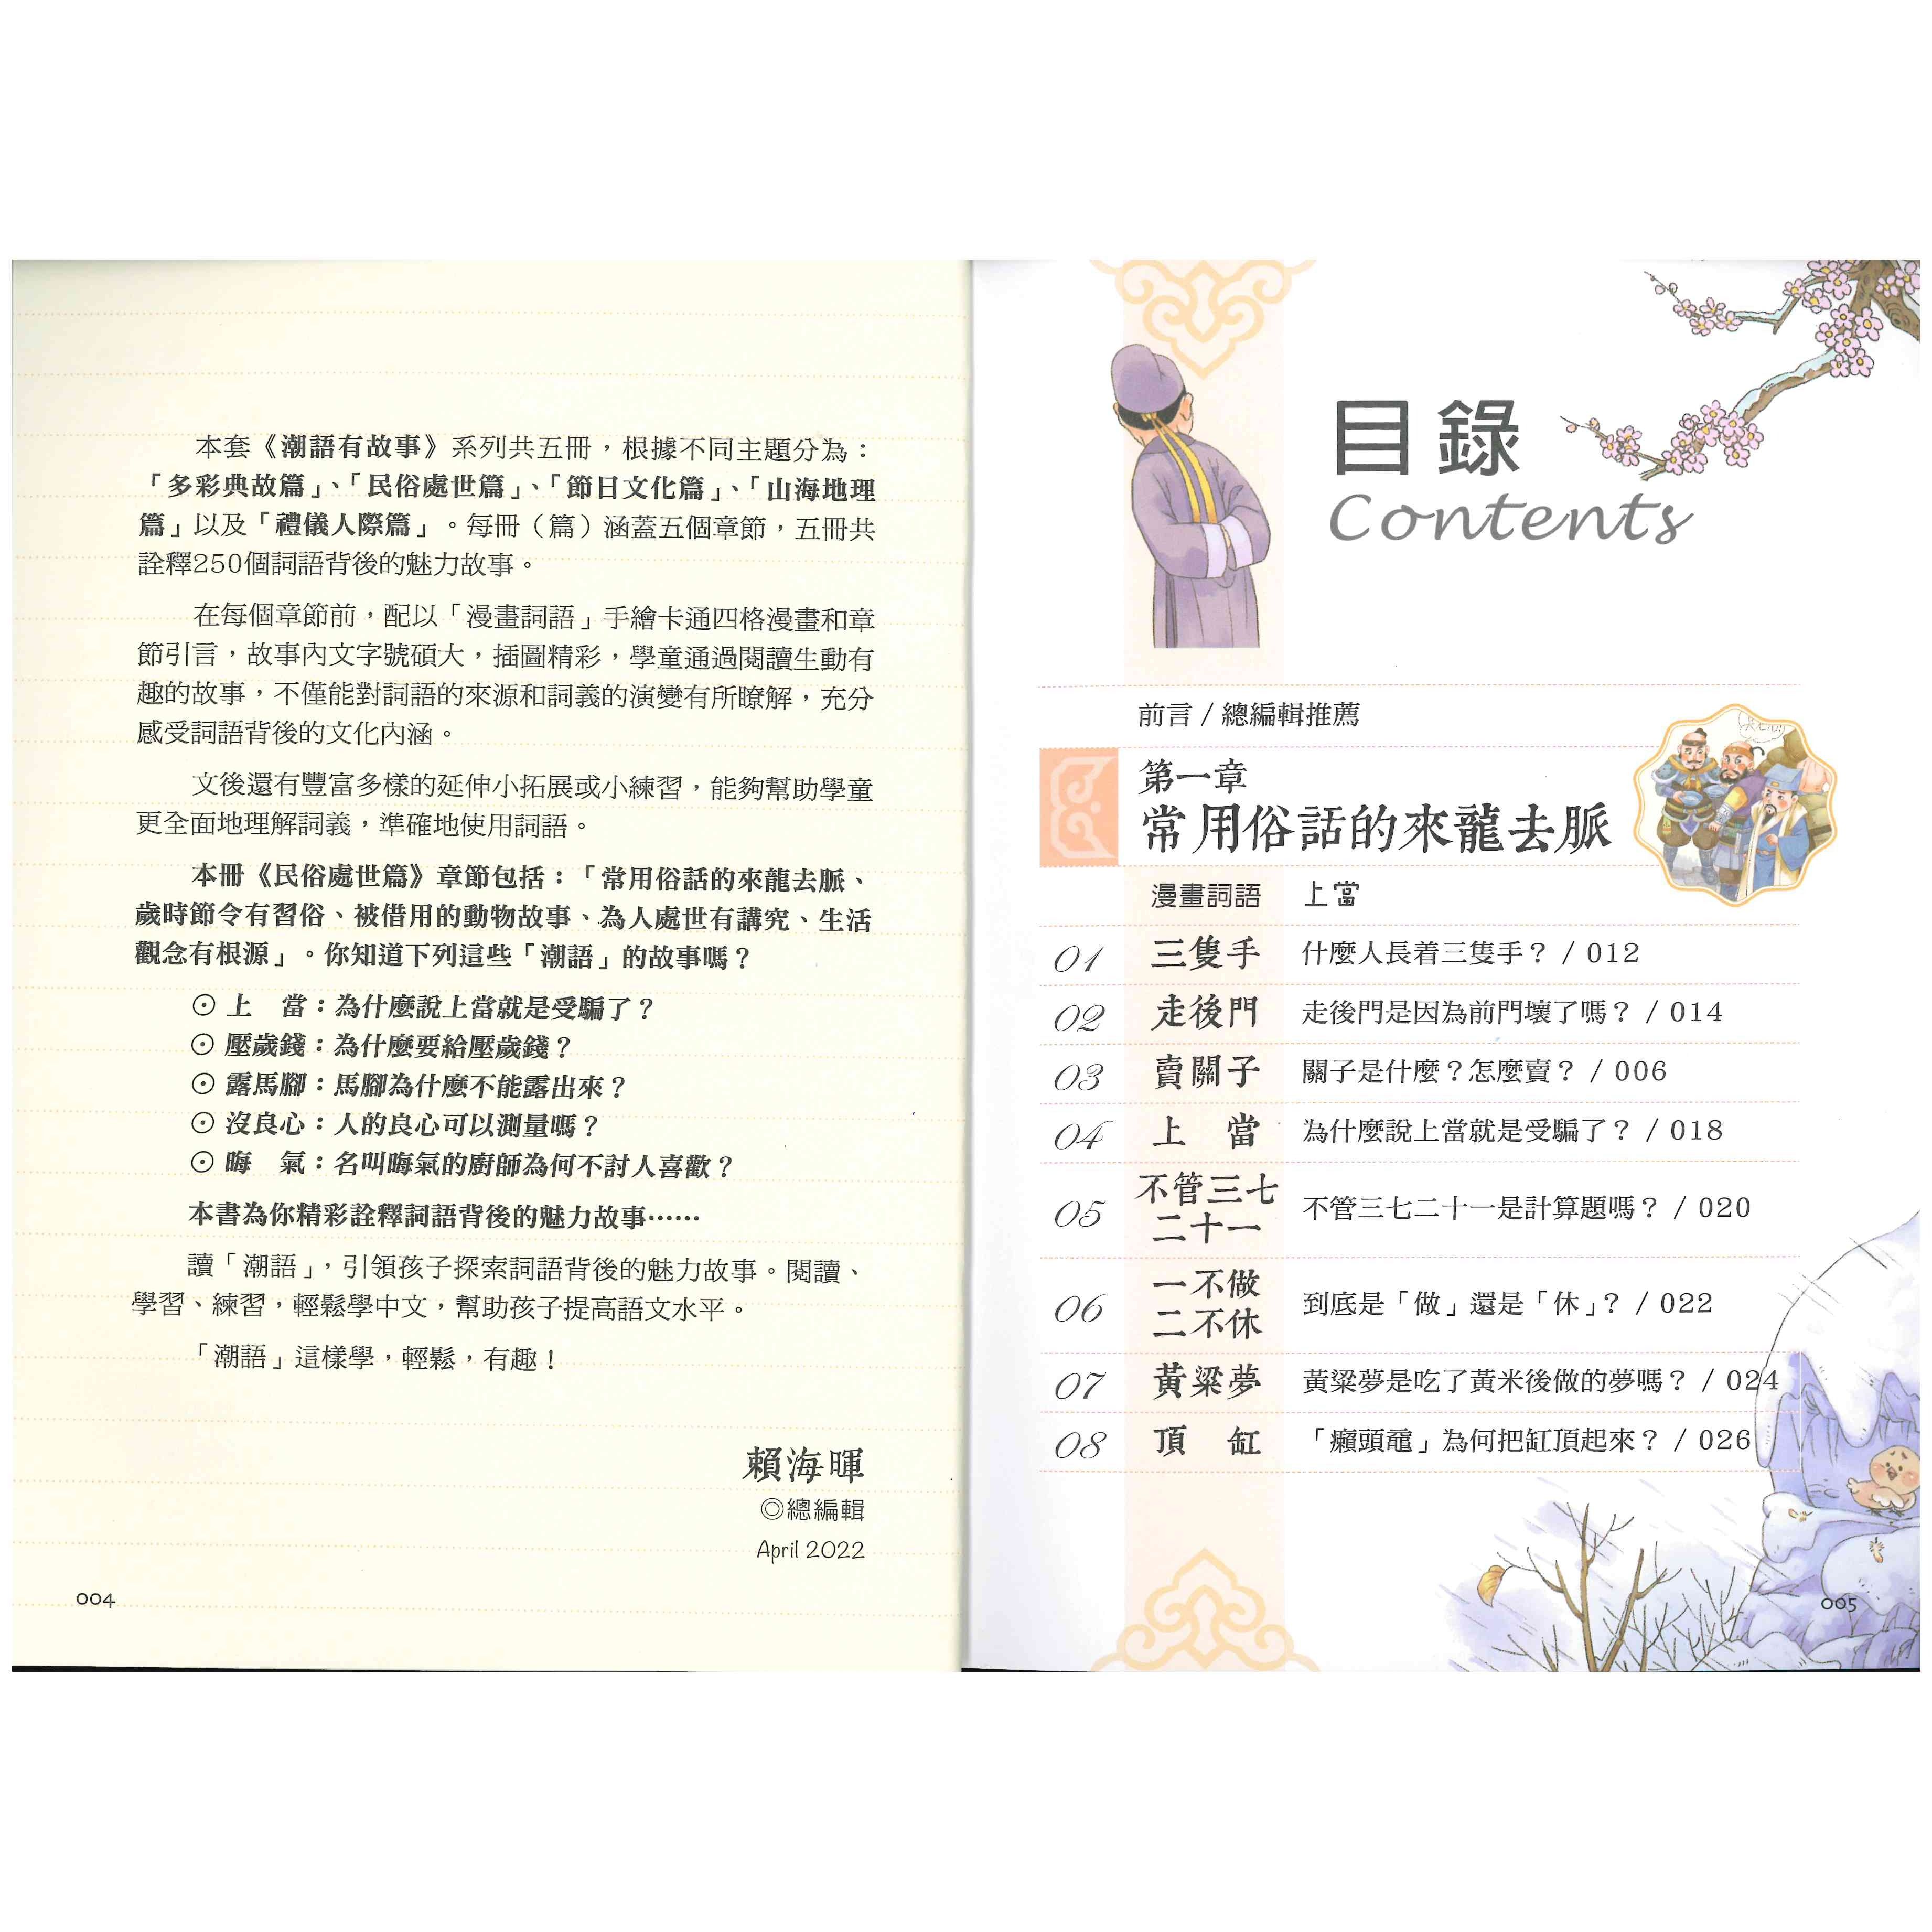 本套《潮語有故事》系列共五冊，根據不同主題分為：
「多彩典故篇」、「民俗處世篇」、「節日文化篇」、「山海地理
篇」以及「禮儀人際篇」。每冊（篇）涵蓋五個章節，五冊共
詮釋250個詞語背後的魅力故事。
在每個章節前，配以「漫畫詞語」手繪卡通四格漫畫和章
節引言，故事內文字號碩大，插圖精彩，學童通過閱讀生動有
趣的故事，不僅能對詞語的來源和詞義的演變有所瞭解，充分
感受詞語背後的文化內涵。
文後還有豐富多樣的延伸小拓展或小練習，能夠幫助學童
更全面地理解詞義，準確地使用詞語。
本冊《民俗處世篇》章節包括：「常用俗話的來龍去脈、
歲時節令有習俗、被借用的動物故事、為人處世有講究、生活
觀念有根源」。你知道下列這些「潮語」的故事嗎？
⊙ 上　當：為什麼說上當就是受騙了？
⊙ 壓歲錢：為什麼要給壓歲錢？
⊙ 露馬腳：馬腳為什麼不能露出來？
⊙ 沒良心：人的良心可以測量嗎？
⊙ 晦　氣：名叫晦氣的廚師為何不討人喜歡？
本書為你精彩詮釋詞語背後的魅力故事……
讀「潮語」，引領孩子探索詞語背後的魅力故事。閱讀、
學習、練習，輕鬆學中文，幫助孩子提高語文水平。
「潮語」這樣學，輕鬆，有趣！
賴海暉
◎總編輯
April 2022
004
目錄
Contents
前言 / 總編輯推薦
第一章
常用俗話的來龍去脈
漫畫詞語　上當
01　三隻手　什麼人長着三隻手？ / 012
02　走後門　走後門是因為前門壞了嗎？ / 014
03　賣關子　關子是什麼？怎麼賣？ / 006
04　上　當　為什麼說上當就是受騙了？ / 018
05　不管三七
二十一　不管三七二十一是計算題嗎？ / 020
06　一不做
二不休　到底是「做」還是「休」？ / 022
07　黃粱夢　黃粱夢是吃了黃米後做的夢嗎？ / 024
08　頂　缸　「癩頭黿」為何把缸頂起來？ / 026
005